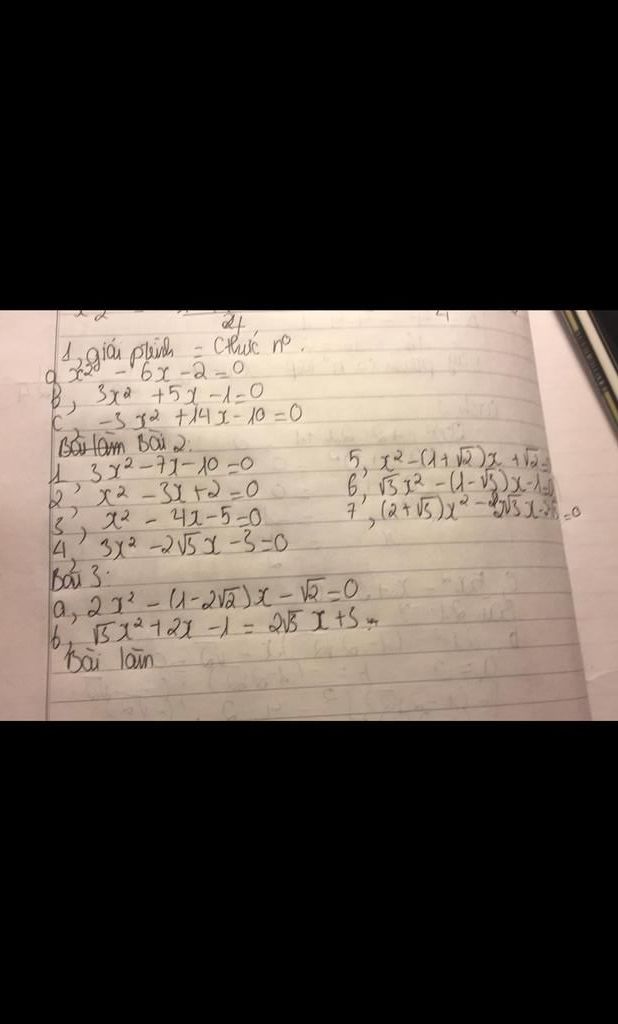 1, giải phtrình = Cthức n°.
a x² - 6x - 2 = 0
b, 3x² + 5x - 1 = 0
c, -3x² + 14x - 10 = 0
Bài làm Bài 2.
1, 3x² - 7x - 10 = 0
2, x² - 3x + 2 = 0
3, x² - 4x - 5 = 0
4, 3x² - 2√3 x - 3 = 0
5, x² - (1 + √2)x + √2 =
6, √3x² - (1 - √3)x - 1 = 0
7, (2 + √3)x² - 2√3x - 2 = 0
Bài 3:
a, 2x² - (1 - 2√2)x - √2 = 0
b, √3x² + 2x - 1 = 2√3 x + 3
Bài làm